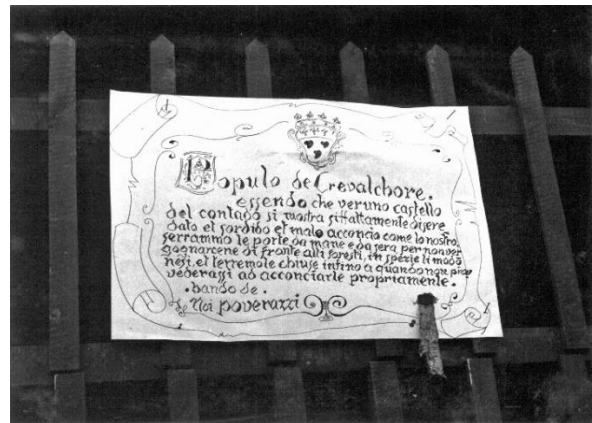 Populo de Crevalchore.
essendo che veruno castello
del contado si mostra siffattamente disere
dato et sordido et male acconcio come lo nostro,
serrammo le porte da mane e da sera per non ver
gognarcene di fronte alli foresti, in spezie li modo
nesi, et terremole chiuse infino a quando non prov
vederassi ad acconciarle propriamente.
. bando de .
Noi poverazzi